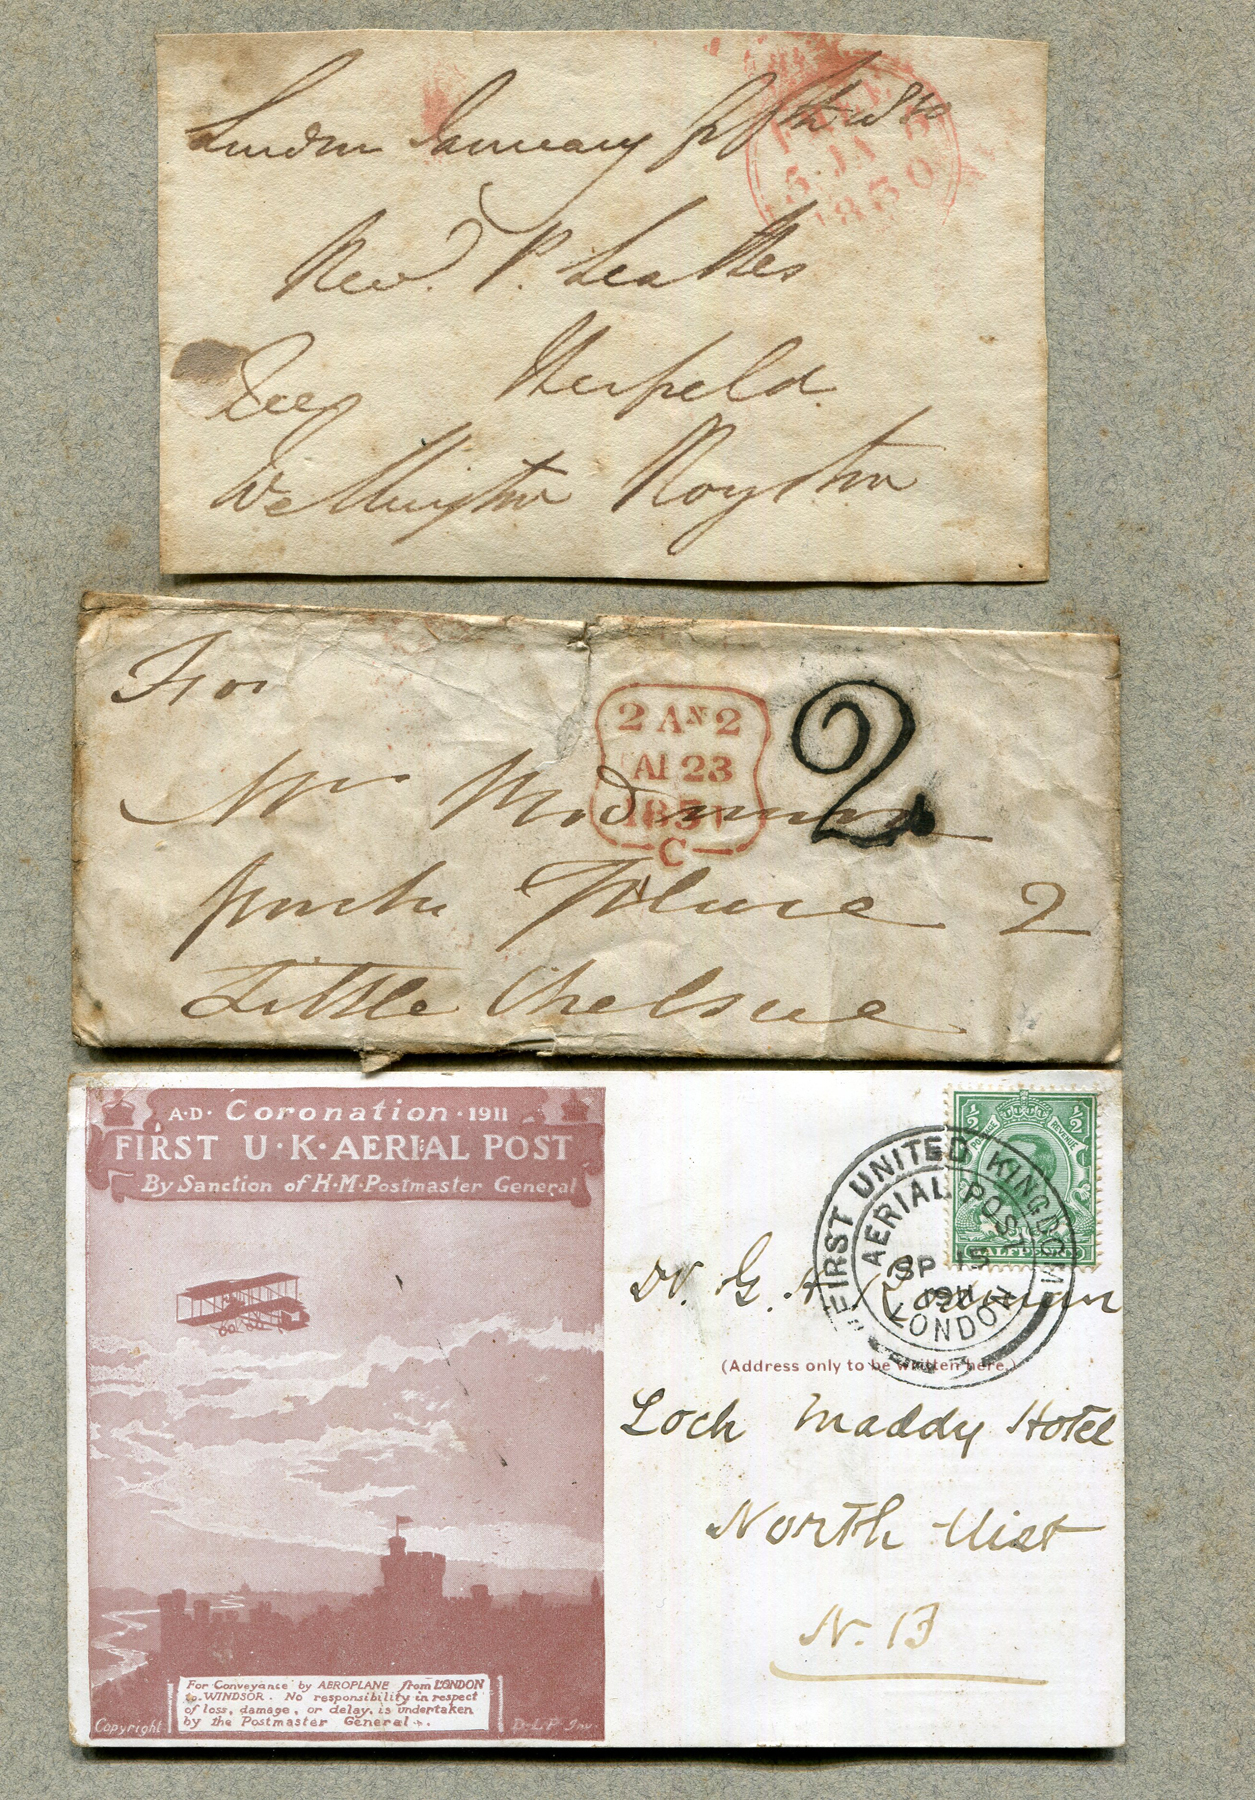 London January fifth 1830
FREE
5 JA 5
1830
Revd. P. Leathes
Free
Wellington Royston
For
2 AN 2
2
Mr
C
Place 2
Little Chelsea
A·D· Coronation · 1911
FIRST U·K·AERIAL POST
By Sanction of H·M·Postmaster General
1/2 POSTAGE REVENUE 1/2
HALFPENNY
FIRST UNITED KINGDOM
AERIAL POST
SP 15
1911
LONDON
3
Dr. G. H.
(Address only to be written here.)
Loch Maddy Hotel
North Uist
N. 13
For Conveyance by AEROPLANE from LONDON
to WINDSOR. No responsibility in respect
of loss, damage, or delay, is undertaken
by the Postmaster General.
Copyright
D.L.P Inv.